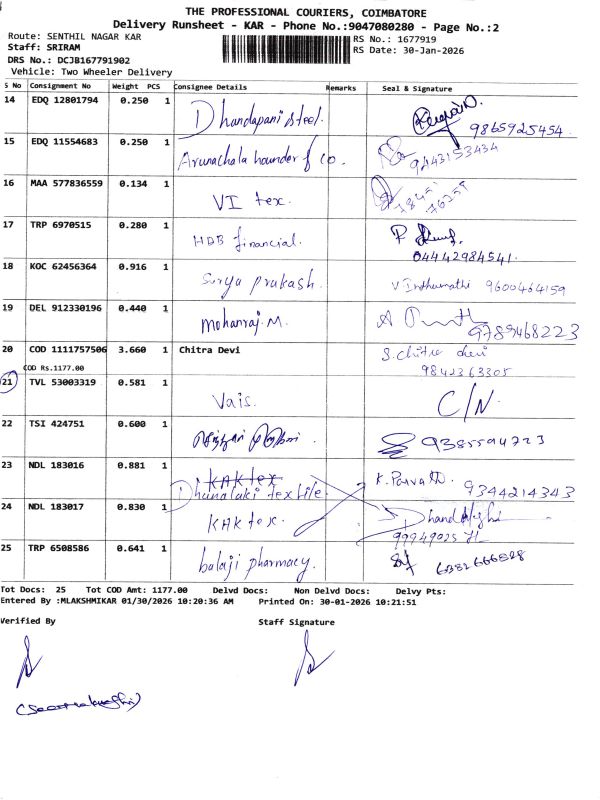 THE PROFESSIONAL COURIERS, COIMBATORE
Delivery Runsheet - KAR - Phone No.:9047080280 - Page No.:2
Route: SENTHIL NAGAR KAR
RS No.: 1677919
Staff: SRIRAM
RS Date: 30-Jan-2026
DRS No.: DCJB167791902
Vehicle: Two Wheeler Delivery
S No Consignment No Weight PCS Consignee Details Remarks Seal & Signature
14 EDQ 12801794 0.250 1 Dhandapani steel. 9865925454
15 EDQ 11554683 0.250 1 Arunachala & co. 9443153434
16 MAA 577836559 0.134 1 VI tex.
17 TRP 6970515 0.280 1 HDB financial. 04442984541
18 KOC 62456364 0.916 1 Surya prakash. V Indhumathi 9600464159
19 DEL 912330196 0.440 1 Mohanraj. M. 9789468223
20 COD 1111757506 3.660 1 Chitra Devi S. Chitra devi
COD Rs.1177.00 9842363305
21 TVL 53003319 0.581 1 Vais. C/N.
22 TSI 424751 0.600 1 9385594723
23 NDL 183016 0.881 1 KAK tex K. 9344214343
Dhanalaki textile.
24 NDL 183017 0.830 1 KAK tex.
25 TRP 6508586 0.641 1 balaji pharmacy. 6382666528
Tot Docs: 25 Tot COD Amt: 1177.00 Delvd Docs: Non Delvd Docs: Delvy Pts:
Entered By :MLAKSHMIKAR 01/30/2026 10:20:36 AM Printed On: 30-01-2026 10:21:51
Verified By Staff Signature